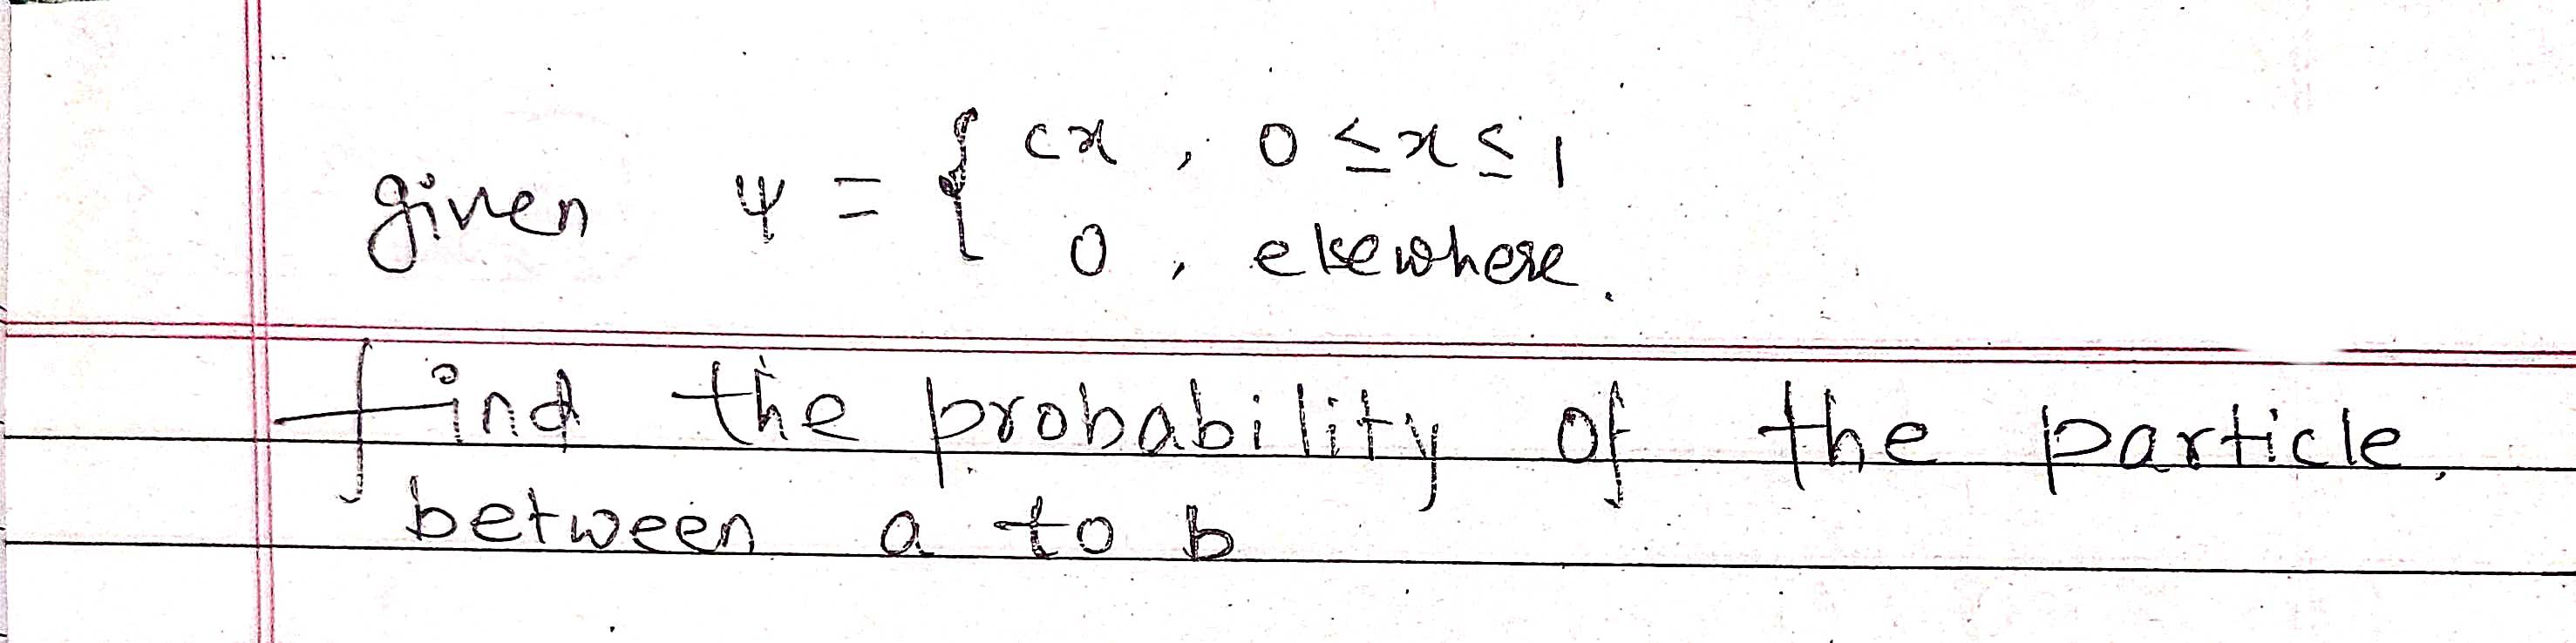 given ψ = { cx , 0 ≤ x ≤ 1
0 , elsewhere.
find the probability of the particle,
between a to b